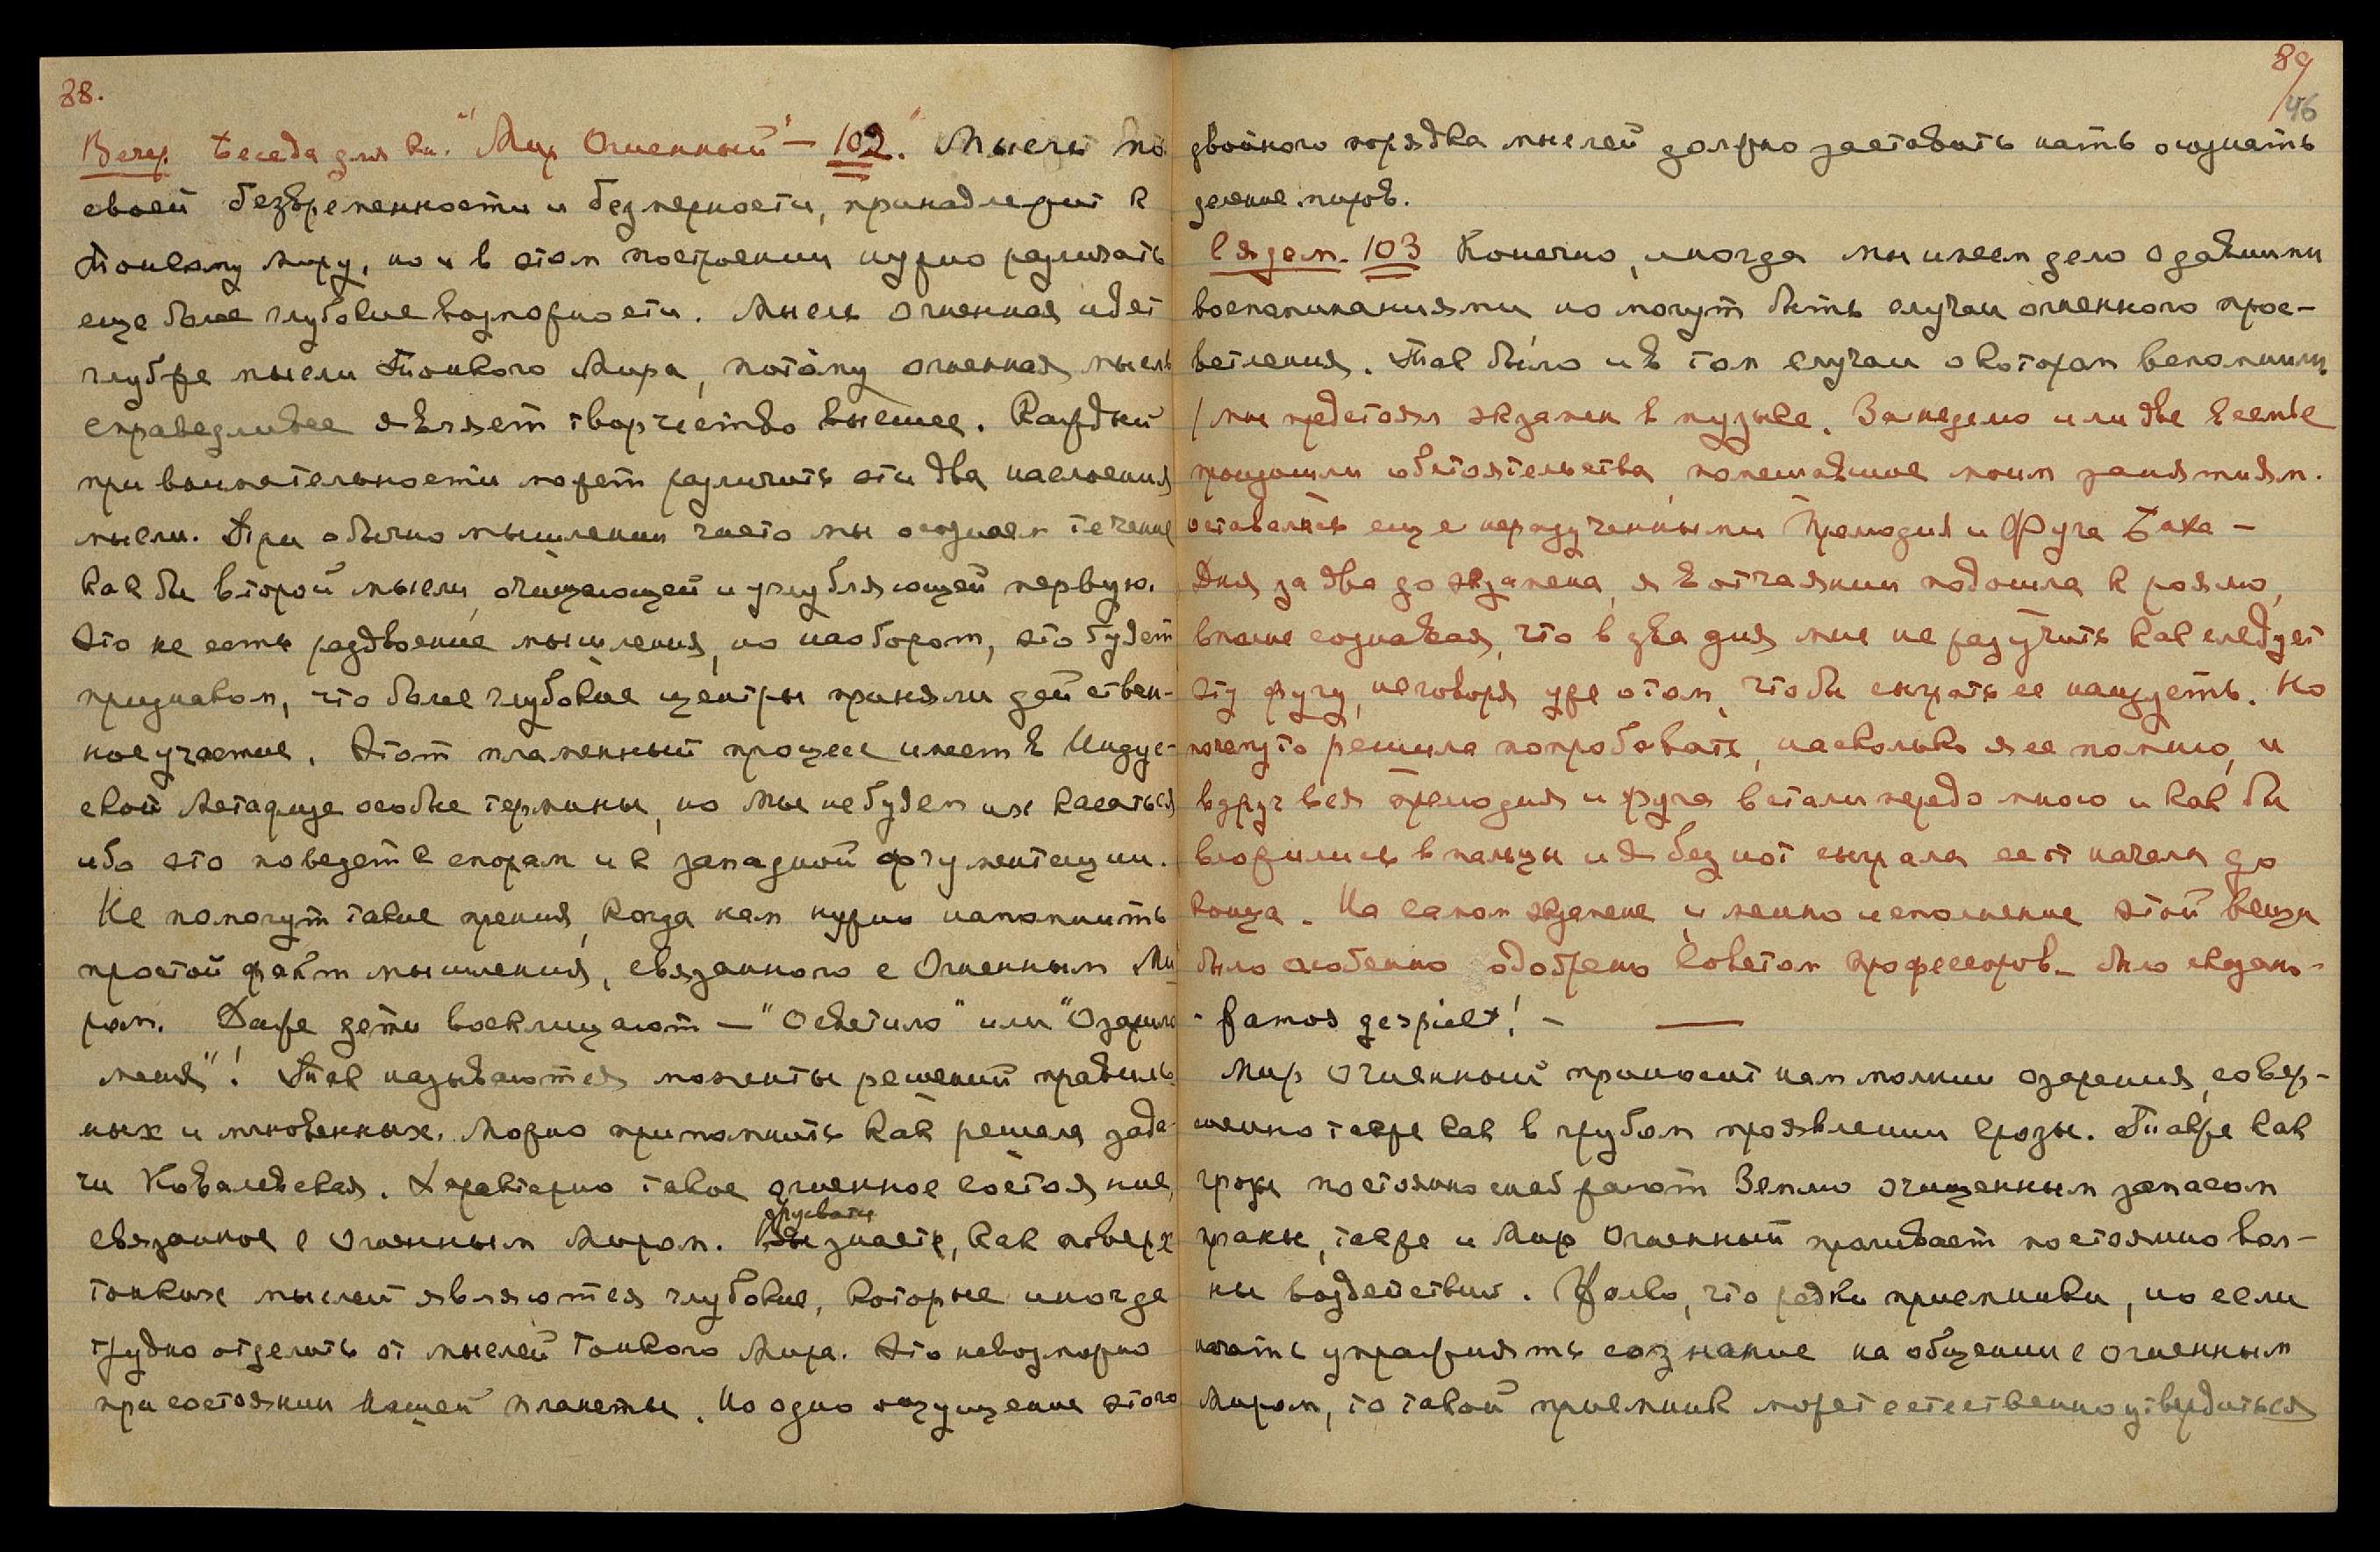 88.
Вечер. Беседа для кн. "Мир Огненный" – 102. Мысли по
своей безвременности и безмерности, принадлежит к
Тонкому миру, но и в этом построении нужно различать
еще более глубокие возможности. Мысль огненная идет
глубже мысли Тонкого Мира, потому огненная мысль
справедливее являет творчество высшее. Каждый
при внимательности может различить эти два наслоения
мысли. При обычно мышлении часто мы осознаем течение
как бы второй мысли, очищающей и углубляющей первую.
Это не есть раздвоение мышления, но наоборот, это будет
признаком, что более глубокие центры приняли действен-
ное участие. Этот пламенный процесс имеет в Индус-
ской Метафизе особые термины, но Мы не будем их касаться
ибо это поведет к спорам и к западной аргументации.
Не помогут такие прения, когда нам нужно напомнить
простой факт мышления, связанного с Огненным Ми-
ром. Даже дети восклицают – "Осветило" или "Озарило
меня"! Так называются моменты решений правиль-
ных и мгновенных. Можно припомнить как решала зада-
чи Ковалевская. Характерно такое огненное состояние,
связанное с Огненным Миром. Вы знаете, как поверх
тонких мыслей являются глубокие, которые иногда
трудно отделить от мыслей Тонкого Мира. Это невозможно
при состоянии Нашей планеты. Но одно ощущение этого
89
46
двойного порядка мыслей должно заставить нать осознать
деление миров.
103 Конечно, иногда мы имеем дело с давними
воспоминаниями, но могут быть случаи огненного прос-
ветления. Так было и в том случаи о котором вспомнили
/мне предстоял экзамен в музыке. За неделю или две в семье
произошли обстоятельства, помешавшие моим занятиям.
оставались еще неразученными Прелюдия и Фуга Баха –
Дня за два до экзамена, я в отчаянии подошла к роялю,
вполне сознавая, что в два дня мне не разучить как следует
эту фугу, не говоря уже о том, чтобы сыграть ее наизусть. Но
почему то решила попробовать, насколько я ее помню, и
вдруг вся прелюдия и фуга встали передо мною и как бы
вложились в пальцы и я без нот сыграла ее от начала до
конца. На самом экзамене и менно исполнение этой вещи
было особенно одобрено Советом профессоров_ было сказано-
- famos gespielt! –
Мир Огненный приносит нам молнии озарения, совер-
шенно также как в грубом проявлении Грозы. Также как
грозы постоянно снабжают Землю очищенным запасом
праны, также и Мир Огненный проливает постоянно вол-
ны воздействий. Жалко, что редки приемники, но если
начать упражнять сознание на общении с Огненным
Миром, то такой приемник может естественно утвердиться